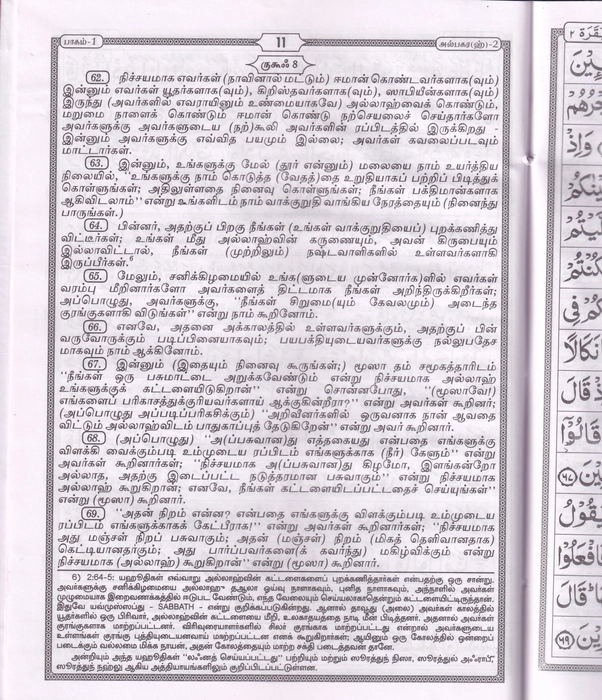 பாகம்-1
11
அல்பகர(ஹ்)-2
ருகூஃ 8
62. நிச்சயமாக எவர்கள் (நாவினால் மட்டும்) ஈமான் கொண்டவர்களாக(வும்)
இன்னும் எவர்கள் யூதர்களாக(வும்), கிறிஸ்தவர்களாக(வும்), ஸாபியீன்களாக(வும்)
இருந்து (அவர்களில் எவராயினும் உண்மையாகவே) அல்லாஹ்வைக் கொண்டும்,
மறுமை நாளைக் கொண்டும் ஈமான் கொண்டு நற்செயலைச் செய்தார்களோ
அவர்களுக்கு அவர்களுடைய (நற்)கூலி அவர்களின் ரப்பிடத்தில் இருக்கிறது -
இன்னும் அவர்களுக்கு எவ்வித பயமும் இல்லை; அவர்கள் கவலைப்படவும்
மாட்டார்கள்.
63. இன்னும், உங்களுக்கு மேல் (தூர் என்னும்) மலையை நாம் உயர்த்திய
நிலையில், “உங்களுக்கு நாம் கொடுத்த (வேதத்)தை உறுதியாகப் பற்றிப் பிடித்துக்
கொள்ளுங்கள்; அதிலுள்ளதை நினைவு கொள்ளுங்கள்; நீங்கள் பக்திமான்களாக
ஆகிவிடலாம்” என்று உங்களிடம் நாம் வாக்குறுதி வாங்கிய நேரத்தையும் (நினைந்து
பாருங்கள்.)
64. பின்னர், அதற்குப் பிறகு நீங்கள் (உங்கள் வாக்குறுதியைப்) புறக்கணித்து
விட்டீர்கள்; உங்கள் மீது அல்லாஹ்வின் கருணையும், அவன் கிருபையும்
இல்லாவிட்டால், நீங்கள் (முற்றிலும்) நஷ்டவாளிகளில் உள்ளவர்களாகி
இருப்பீர்கள்.6
65. மேலும், சனிக்கிழமையில் உங்க(ளுடைய முன்னோர்க)ளில் எவர்கள்
வரம்பு மீறினார்களோ அவர்களைத் திட்டமாக நீங்கள் அறிந்திருக்கிறீர்கள்;
அப்பொழுது, அவர்களுக்கு, “நீங்கள் சிறுமை(யும் கேவலமும்) அடைந்த
குரங்குகளாகி விடுங்கள்” என்று நாம் கூறினோம்.
66. எனவே, அதனை அக்காலத்தில் உள்ளவர்களுக்கும், அதற்குப் பின்
வருவோருக்கும் படிப்பினையாகவும்; பயபக்தியுடையவர்களுக்கு நல்லுபதேச
மாகவும் நாம் ஆக்கினோம்.
67. இன்னும் (இதையும் நினைவு கூருங்கள்;) மூஸா தம் சமூகத்தாரிடம்
“நீங்கள் ஒரு பசுமாட்டை அறுக்கவேண்டும் என்று நிச்சயமாக அல்லாஹ்
உங்களுக்குக் கட்டளையிடுகிறான்” என்று சொன்னபோது, “(மூஸாவே!)
எங்களைப் பரிகாசத்துக்குரியவர்களாய் ஆக்குகின்றீரா?” என்று அவர்கள் கூறினர்;
(அப்பொழுது அப்படிப்பரிகசிக்கும்) “அறிவீனர்களில் ஒருவனாக நான் ஆவதை
விட்டும் அல்லாஹ்விடம் பாதுகாப்புத் தேடுகிறேன்” என்று அவர் கூறினார்.
68. (அப்பொழுது) “அ(ப்பசுவான)து எத்தகையது என்பதை எங்களுக்கு
விளக்கி வைக்கும்படி உம்முடைய ரப்பிடம் எங்களுக்காக (நீர்) கேளும்” என்று
அவர்கள் கூறினார்கள்; “நிச்சயமாக அ(ப்பசுவான)து கிழமோ, இளங்கன்றோ
அல்லாத, அதற்கு இடைப்பட்ட நடுத்தரமான பசுவாகும்” என்று நிச்சயமாக
அல்லாஹ் கூறுகிறான்; எனவே, நீங்கள் கட்டளையிடப்பட்டதைச் செய்யுங்கள்”
என்று (மூஸா) கூறினார்.
69. “அதன் நிறம் என்ன? என்பதை எங்களுக்கு விளக்கும்படி உம்முடைய
ரப்பிடம் எங்களுக்காகக் கேட்பீராக!” என்று அவர்கள் கூறினார்கள்; “நிச்சயமாக
அது மஞ்சள் நிறப் பசுவாகும்; அதன் (மஞ்சள்) நிறம் (மிகத் தெளிவானதாக)
கெட்டியானதாகும்; அது பார்ப்பவர்களை(க் கவர்ந்து) மகிழ்விக்கும் என்று
நிச்சயமாக (அல்லாஹ்) கூறுகிறான்” என்று (மூஸா) கூறினார்.
6) 2:64-5: யஹூதிகள் எவ்வாறு அல்லாஹ்வின் கட்டளைகளைப் புறக்கணித்தார்கள் என்பதற்கு ஒரு சான்று.
அவர்களுக்கு சனிக்கிழமையை அல்லாஹு தஆலா ஓய்வு நாளாகவும், புனித நாளாகவும், அந்நாளில் அவர்கள்
முழுமையாக இறைவணக்கத்தில் ஈடுபட வேண்டும், எந்த வேலையும் செய்யலாகாதென்றும் கட்டளையிட்டிருந்தான்.
இதுவே யவ்முஸ்ஸப்து - SABBATH - என்று குறிக்கப்படுகிறது. ஆனால் தாவூது (அலை) அவர்கள் காலத்தில்
யூதர்களில் ஒரு பிரிவார், அல்லாஹ்வின் கட்டளையை மீறி, உலகாதாயத்தை நாடி மீன் பிடித்தனர். அதனால் அவர்கள்
குரங்குகளாக மாற்றப்பட்டனர். விரிவுரையாளர்களில் சிலர் குரங்காக மாற்றப்பட்டது என்றால் அவர்களுடைய
உள்ளங்கள் குரங்கு புத்தியுடையனவாய் மாற்றப்பட்டன எனக் கூறுகிறார்கள்; ஆயினும் ஒரு கோலத்தில் ஒன்றைப்
படைக்கும் வல்லமை மிக்க நாயன், அதன் கோலத்தையும் மாற்ற சக்தி படைத்தவன் தானே.
அன்றியும் அந்த யஹூதிகள் “லஃனத் செய்யப்பட்டது” பற்றியும் மற்றும் ஸூரத்துந் நிஸா, ஸூரத்துல் அஃராஃப்,
ஸூரத்துந் நஹ்லு ஆகிய அத்தியாயங்களிலும் குறிப்பிடப்பட்டுள்ளன.